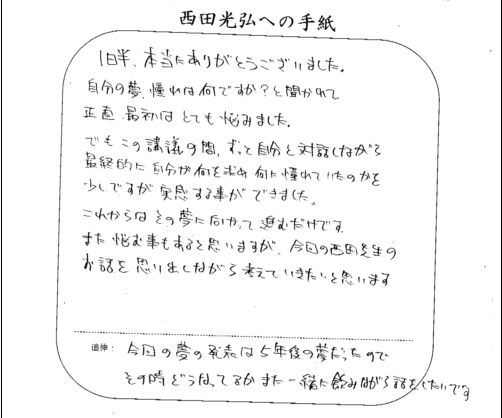 西田光弘への手紙
1日半、本当にありがとうございました。
自分の夢、憧れは何ですか?と聞かれて
正直、最初はとても悩みました。
でもこの講議の間、ずっと自分と対話しながら
最終的に自分が何を求め何に憧れていたのかを
少しですが実感する事ができました。
これからはその夢に向かって進むだけです。
また悩む事もあると思いますが、今回の西田先生の
お話を思い出しながら考えていきたいと思います
追伸: 今回の夢の発表は5年後の夢だったので
その時どうなってるかまた一緒に飲みながら話をしたいです